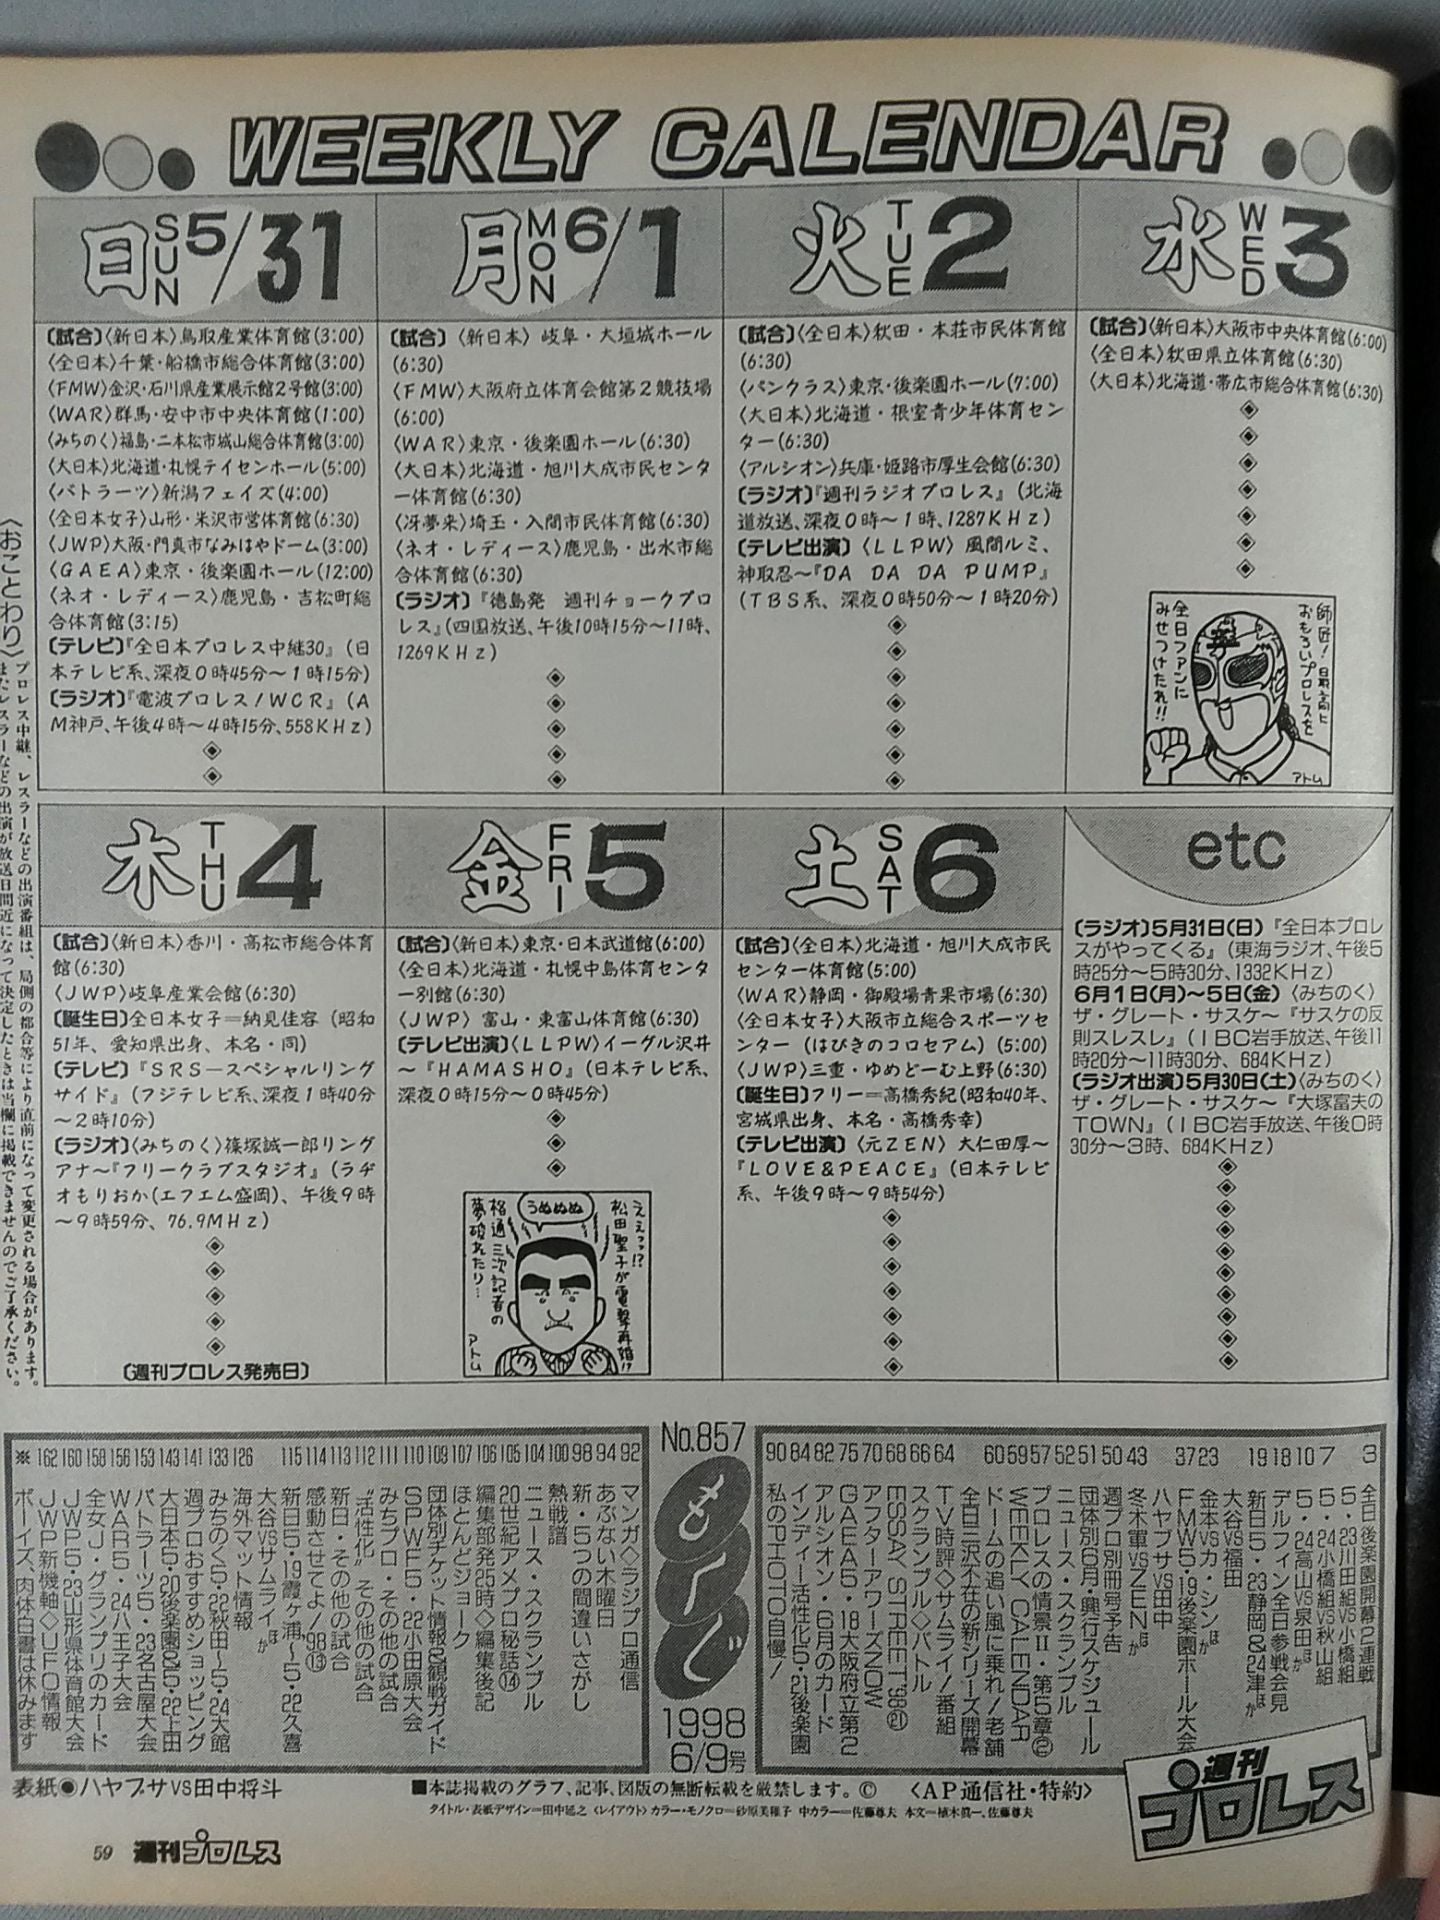 WEEKLY CALENDAR
日 SUN 5/31
〔試合〕〈新日本〉鳥取産業体育館(3:00)
〈全日本〉千葉・船橋市総合体育館(3:00)
〈FMW〉金沢・石川県産業展示館2号館(3:00)
〈WAR〉群馬・安中市中央体育館(1:00)
〈みちのく〉福島・二本松市城山総合体育館(3:00)
〈大日本〉北海道・札幌テイセンホール(5:00)
〈バトラーツ〉新潟フェイズ(4:00)
〈全日本女子〉山形・米沢市営体育館(6:30)
〈JWP〉大阪・門真市なみはやドーム(3:00)
〈GAEA〉東京・後楽園ホール(12:00)
〈ネオ・レディース〉鹿児島・吉松町総
合体育館(3:15)
〔テレビ〕『全日本プロレス中継30』(日
本テレビ系、深夜0時45分〜1時15分)
〔ラジオ〕『電波プロレス!WCR』(A
M神戸、午後4時〜4時15分、558KHz)
月 MON 6/1
〔試合〕〈新日本〉岐阜・大垣城ホール
(6:30)
〈FMW〉大阪府立体育会館第2競技場
(6:00)
〈WAR〉東京・後楽園ホール(6:30)
〈大日本〉北海道・旭川大成市民センタ
ー体育館(6:30)
〈冴夢来〉埼玉・入間市民体育館(6:30)
〈ネオ・レディース〉鹿児島・出水市総
合体育館(6:30)
〔ラジオ〕『徳島発 週刊チョークプロ
レス』(四国放送、午後10時15分〜11時、
1269KHz)
火 TUE 2
〔試合〕〈全日本〉秋田・本荘市民体育館
(6:30)
〈パンクラス〉東京・後楽園ホール(7:00)
〈大日本〉北海道・根室青少年体育セン
ター(6:30)
〈アルシオン〉兵庫・姫路市厚生会館(6:30)
〔ラジオ〕『週刊ラジオプロレス』(北海
道放送、深夜0時〜1時、1287KHz)
〔テレビ出演〕〈LLPW〉風間ルミ、
神取忍〜『DA DA DA PUMP』
(TBS系、深夜0時50分〜1時20分)
水 WED 3
〔試合〕〈新日本〉大阪市中央体育館(6:00)
〈全日本〉秋田県立体育館(6:30)
〈大日本〉北海道・帯広市総合体育館(6:30)
師匠!最高に
おもろいプロレスを
全日ファンに
みせつけたれ!!
アトム
木 THU 4
〔試合〕〈新日本〉香川・高松市総合体育
館(6:30)
〈JWP〉岐阜産業会館(6:30)
〔誕生日〕全日本女子=納見佳容(昭和
51年、愛知県出身、本名・同)
〔テレビ〕『SRS−スペシャルリング
サイド』(フジテレビ系、深夜1時40分
〜2時10分)
〔ラジオ〕〈みちのく〉篠塚誠一郎リング
アナ〜『フリークラブスタジオ』(ラヂ
オもりおか(エフエム盛岡)、午後9時
〜9時59分、76.9MHz)
〔週刊プロレス発売日〕
金 FRI 5
〔試合〕〈新日本〉東京・日本武道館(6:00)
〈全日本〉北海道・札幌中島体育センタ
ー別館(6:30)
〈JWP〉富山・東富山体育館(6:30)
〔テレビ出演〕〈LLPW〉イーグル沢井
〜『HAMASHO』(日本テレビ系、
深夜0時15分〜0時45分)
ええっっ!?
松田聖子が電撃再婚!?
うぬぬぬ
格通三次記者の
夢破れたり…
アトム
土 SAT 6
〔試合〕〈全日本〉北海道・旭川大成市民
センター体育館(5:00)
〈WAR〉静岡・御殿場青果市場(6:30)
〈全日本女子〉大阪市立総合スポーツセ
ンター(はびきのコロセアム)(5:00)
〈JWP〉三重・ゆめどーむ上野(6:30)
〔誕生日〕フリー=高橋秀紀(昭和40年、
宮城県出身、本名・高橋秀幸)
〔テレビ出演〕〈元ZEN〉大仁田厚〜
『LOVE&PEACE』(日本テレビ
系、午後9時〜9時54分)
etc
〔ラジオ〕5月31日(日)『全日本プロレ
スがやってくる』(東海ラジオ、午後5
時25分〜5時30分、1332KHz)
6月1日(月)〜5日(金)〈みちのく〉
ザ・グレート・サスケ〜『サスケの反
則スレスレ』(IBC岩手放送、午後11
時20分〜11時30分、684KHz)
〔ラジオ出演〕5月30日(土)〈みちのく〉
ザ・グレート・サスケ〜『大塚富夫の
TOWN』(IBC岩手放送、午後0時
30分〜3時、684KHz)
〈おことわり〉プロレス中継、レスラーなどの出演番組は、局側の都合等により直前になって変更される場合があります。
またレスラーなどの出演が放送日間近になって決定したときは当欄に掲載できませんのでご了承ください。
No.857
もくじ
1998
6/9号
3 全日後楽園開幕2連戦
5・23川田組VS小橋組
7 5・24小橋組VS秋山組
10 5・24高山VS泉田ほか
18 デルフィン全日参戦会見
19 新日5・23静岡&24津ほか
大谷VS福田
23 金本VSカ・シンほか
37 FMW5・19後楽園ホール大会
ハヤブサVS田中
43 冬木軍VSZENほか
50 週プロ別冊号予告
51 団体別6月・興行スケジュール
52 ニュース・スクランブル
57 プロレスの情景II・第5章⑫
59 WEEKLY CALENDAR
60 ドームの追い風に乗れ!老舗
全日三沢不在の新シリーズ開幕
64 TV時評◇サムライ!番組
66 スクランブル◇バトル
68 ESSAY STREET'98㉑
70 アフターアワーズNOW
75 GAEA5・18大阪府立第2
82 アルシオン・6月のカード
84 インディー活性化5・21後楽園
90 私のPHOTO自慢!
92 マンガ◇ラジプロ通信
94 あぶない木曜日
98 新・5つの間違いさがし
100 熱戦譜
104 ニュース・スクランブル
105 20世紀アメプロ秘話⑭
106 編集部発25時◇編集後記
107 ほとんどジョーク
109 団体別チケット情報&観戦ガイド
110 SPWF5・22小田原大会
111 みちプロ・その他の試合
112 “活性化”その他の試合
113 新日・その他の試合
114 感動させてよ!'98⑬
115 新日5・19霞ヶ浦〜5・22久喜
大谷VSサムライほか
126 海外マット情報
133 みちのく5・22秋田〜5・24大館
141 週プロおすすめショッピング
143 大日本5・20後楽園&5・22上田
153 バトラーツ5・23名古屋大会
156 WAR5・24八王子大会
158 全女J・グランプリのカード
160 JWP5・23山形県体育館大会
162 JWP新機軸◇UFO情報
※ ボーイズ、肉体白書は休みます
表紙●ハヤブサVS田中将斗
■本誌掲載のグラフ、記事、図版の無断転載を厳禁します。© 〈AP通信社・特約〉
タイトル・表紙デザイン=田中延之 〈レイアウト〉カラー・モノクロ=砂原美稚子 中カラー=佐藤尊夫 本文=植木眞一、佐藤尊夫
週刊プロレス
59 週刊プロレス